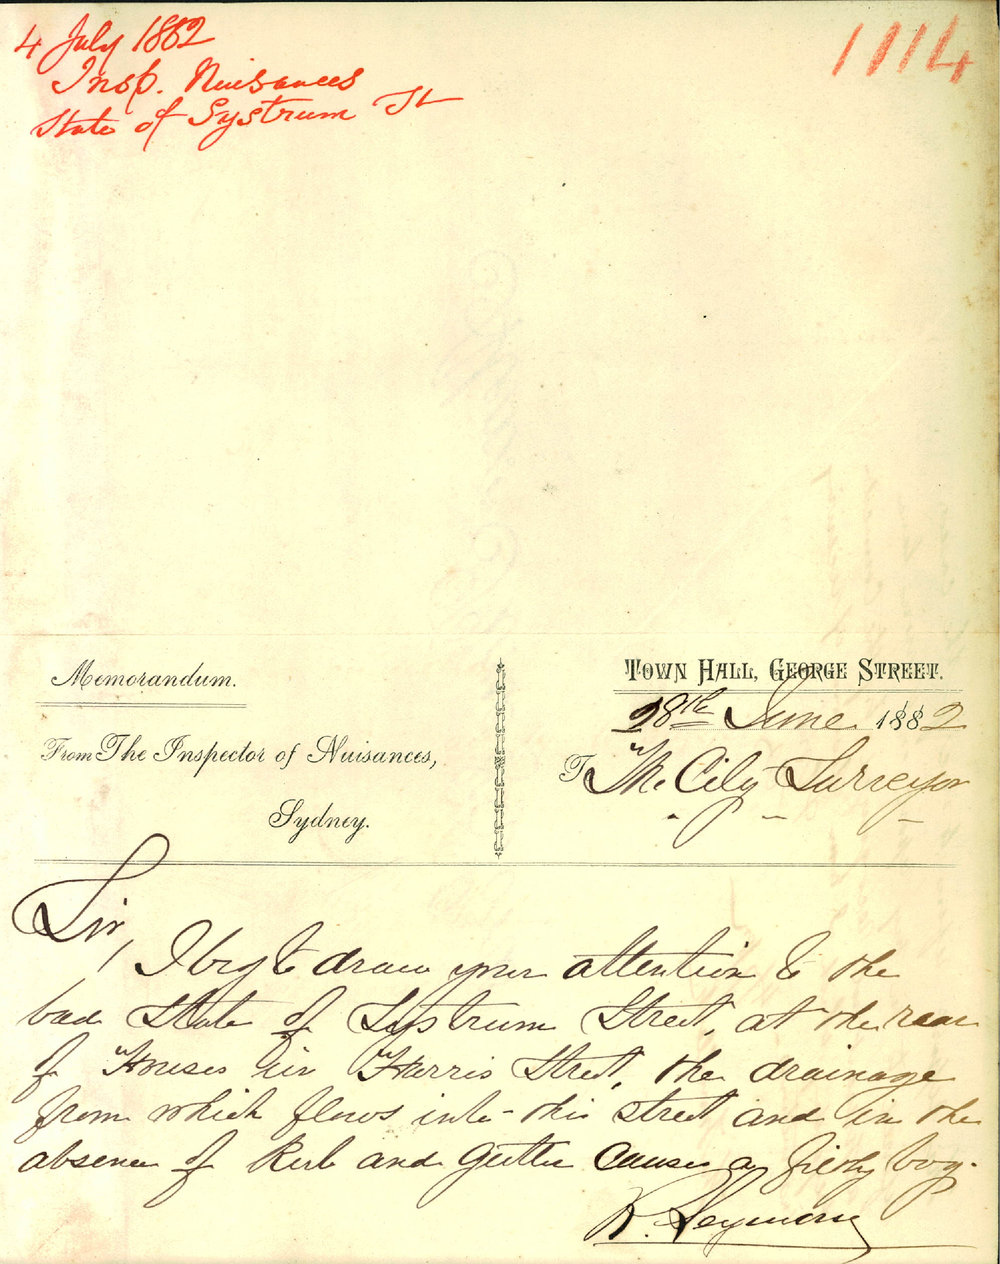 4 July 1882
1114
Insp. Nuisances
State of Systrum St
Memorandum.
From The Inspector of Nuisances,
Sydney.
TOWN HALL, GEORGE STREET.
28th June 1882
To The City Surveyor
Sir,
I beg to draw your attention to the
bad State of Systrum Street, at the rear
of Houses in Harris Street, the drainage
from which flows into this street and in the
absence of Kerb and Gutter causes a filthy bog.
R. Seymour